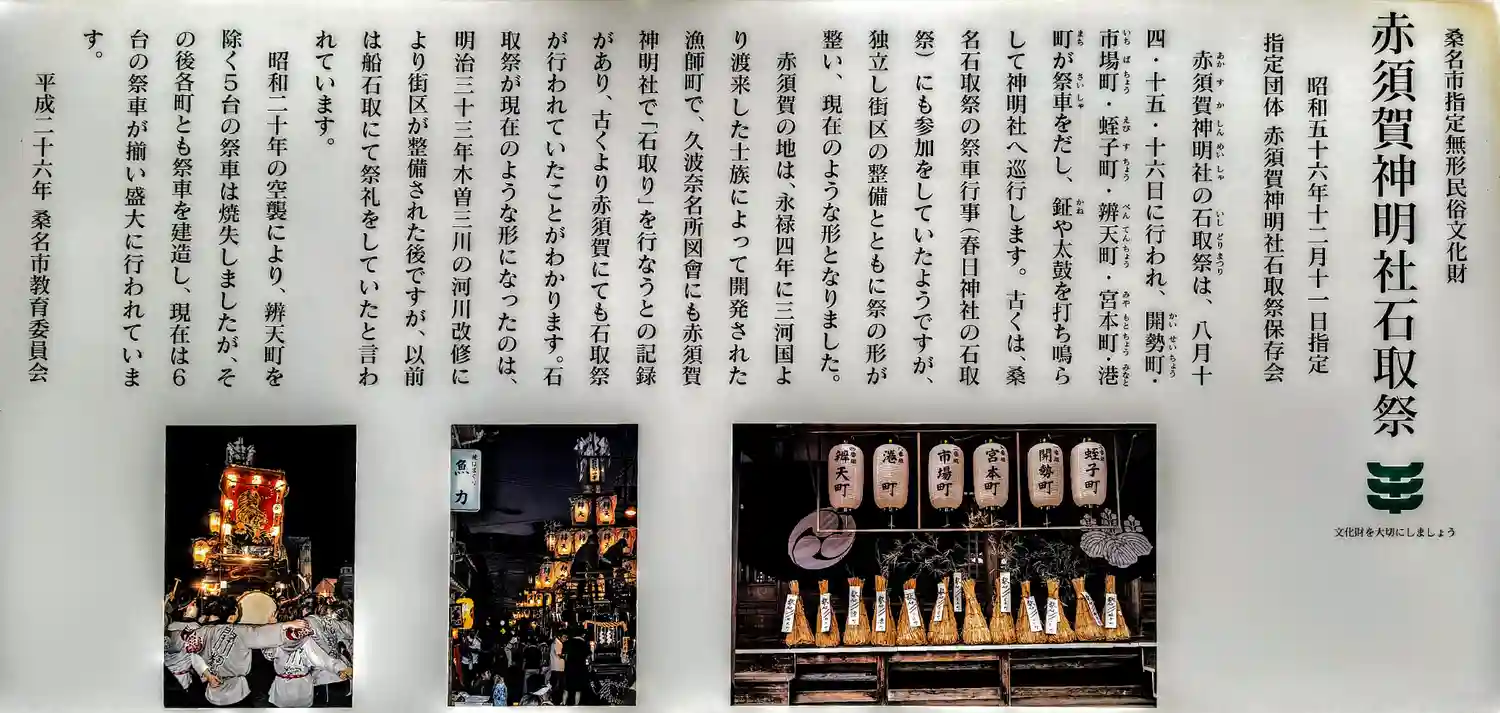 桑名市指定無形民俗文化財
赤須賀神明社石取祭
文化財を大切にしましょう
昭和五十六年十二月十一日指定
指定団体 赤須賀神明社石取祭保存会
赤須賀神明社の石取祭は、八月十
四・十五・十六日に行われ、開勢町・
市場町・蛭子町・辨天町・宮本町・港
町が祭車をだし、鉦や太鼓を打ち鳴ら
して神明社へ巡行します。古くは、桑
名石取祭の祭車行事(春日神社の石取
祭)にも参加をしていたようですが、
独立し街区の整備とともに祭の形が
整い、現在のような形となりました。
赤須賀の地は、永禄四年に三河国よ
り渡来した士族によって開発された
漁師町で、久波奈名所図會にも赤須賀
神明社で「石取り」を行なうとの記録
があり、古くより赤須賀にても石取祭
が行われていたことがわかります。石
取祭が現在のような形になったのは、
明治三十三年木曽三川の河川改修に
より街区が整備された後ですが、以前
は船石取にて祭礼をしていたと言わ
れています。
昭和二十年の空襲により、辨天町を
除く5台の祭車は焼失しましたが、そ
の後各町とも祭車を建造し、現在は6
台の祭車が揃い盛大に行われていま
す。
平成二十六年 桑名市教育委員会
あかすかしんめいしゃ いしどりまつり
かいせいちょう
いちばちょう えびすちょう べんてんちょう みやもとちょう みなと
まち さいしゃ かね
蛭子町
開勢町
宮本町
市場町
港町
辨天町
魚力